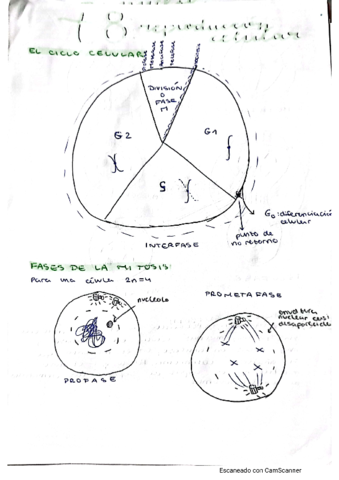 18 reproducción celular
EL CICLO CELULAR:
PROFASE
METAFASE
ANAFASE
TELOFASE
DIVISIÓN
O
FASE
M
G2
G1
S
G0: diferenciació
celular
punto de
no retorno
INTERFASE
FASES DE LA MITOSIS:
Para una célula 2n=4
nucleolo
PROFASE
PROMETAFASE
envoltura
nuclear casi
desaparecida
Escaneado con CamScanner